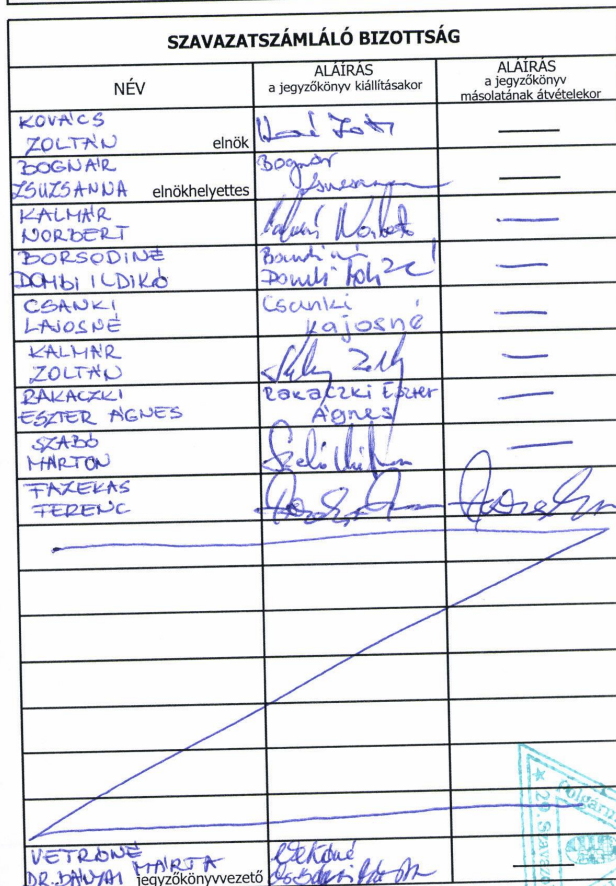 SZAVAZATSZÁMLÁLÓ BIZOTTSÁG
NÉV
ALÁÍRÁS
a jegyzőkönyv kiállításakor
ALÁÍRÁS
a jegyzőkönyv
másolatának átvételekor
KOVÁCS
ZOLTÁN elnök
BOGNÁR Bognár
ZSUZSANNA elnökhelyettes Zsuzsanna
KALMÁR
NORBERT Norbert
BORSODINÉ
DOMBI ILDIKÓ
CSANKI Csanki
LAJOSNÉ Lajosné
KALMÁR
ZOLTÁN
RAKACZKI Rakaczki Eszter
ESZTER ÁGNES Ágnes
SZABÓ
MÁRTON
FAZEKAS
FERENC
VETRÓNÉ
DR. MÁRTA jegyzőkönyvvezető